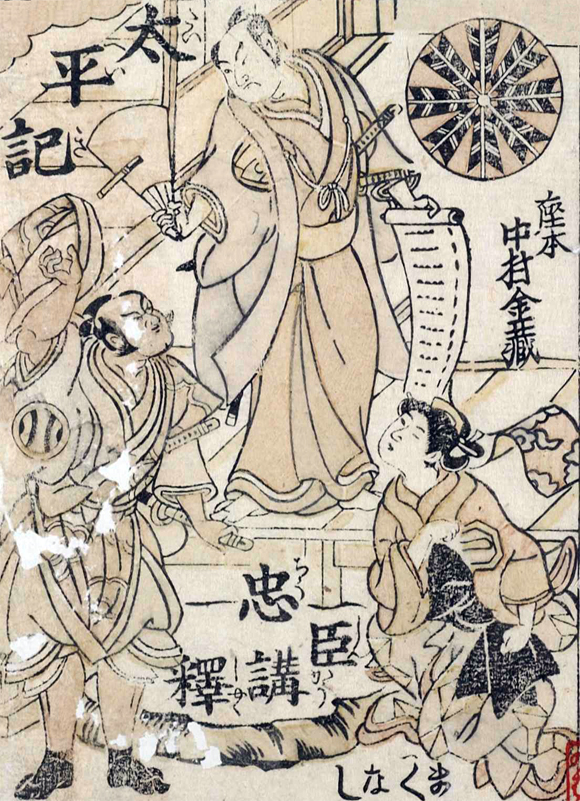 太平記
座本
中村金藏
忠臣講釋
まくなし